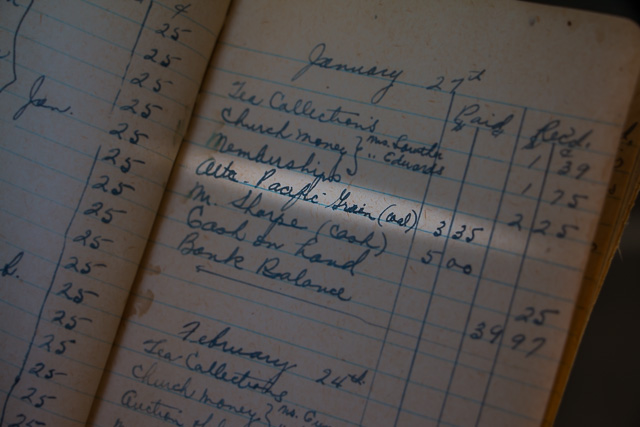 ¢
25
25
25
Jan. 25
25
25
25
25
25
25
25
25
25
25
25
January 27th
Paid Recd.
$ ¢
Tea Collections 1 39
Church Money } Mrs.
" Edwards 1 75
Memberships 2 25
Alta. Pacific Grain (coal) 3 35
M. Sharpe (cash) 5 00
Cash on hand 25
Bank Balance 39 97
February 24th
Tea Collections
Church Money } Mrs.
Auction of